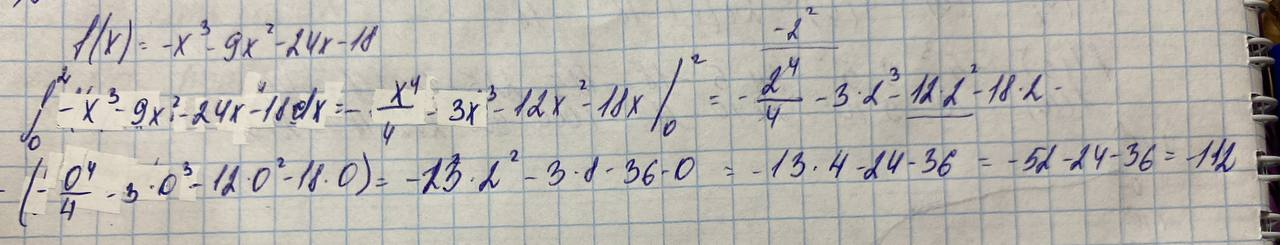 f(x) = -x³ - 9x² - 24x - 18
-2²
∫₀² -x³ - 9x² - 24x - 18 dx = - x⁴/4 - 3x³ - 12x² - 18x |₀² = - 2⁴/4 - 3·2³ - 12·2² - 18·2 -
- (- 0⁴/4 - 3·0³ - 12·0² - 18·0) = -13·2² - 3·8 - 36 - 0 = -13·4 - 24 - 36 = -52 - 24 - 36 = -112